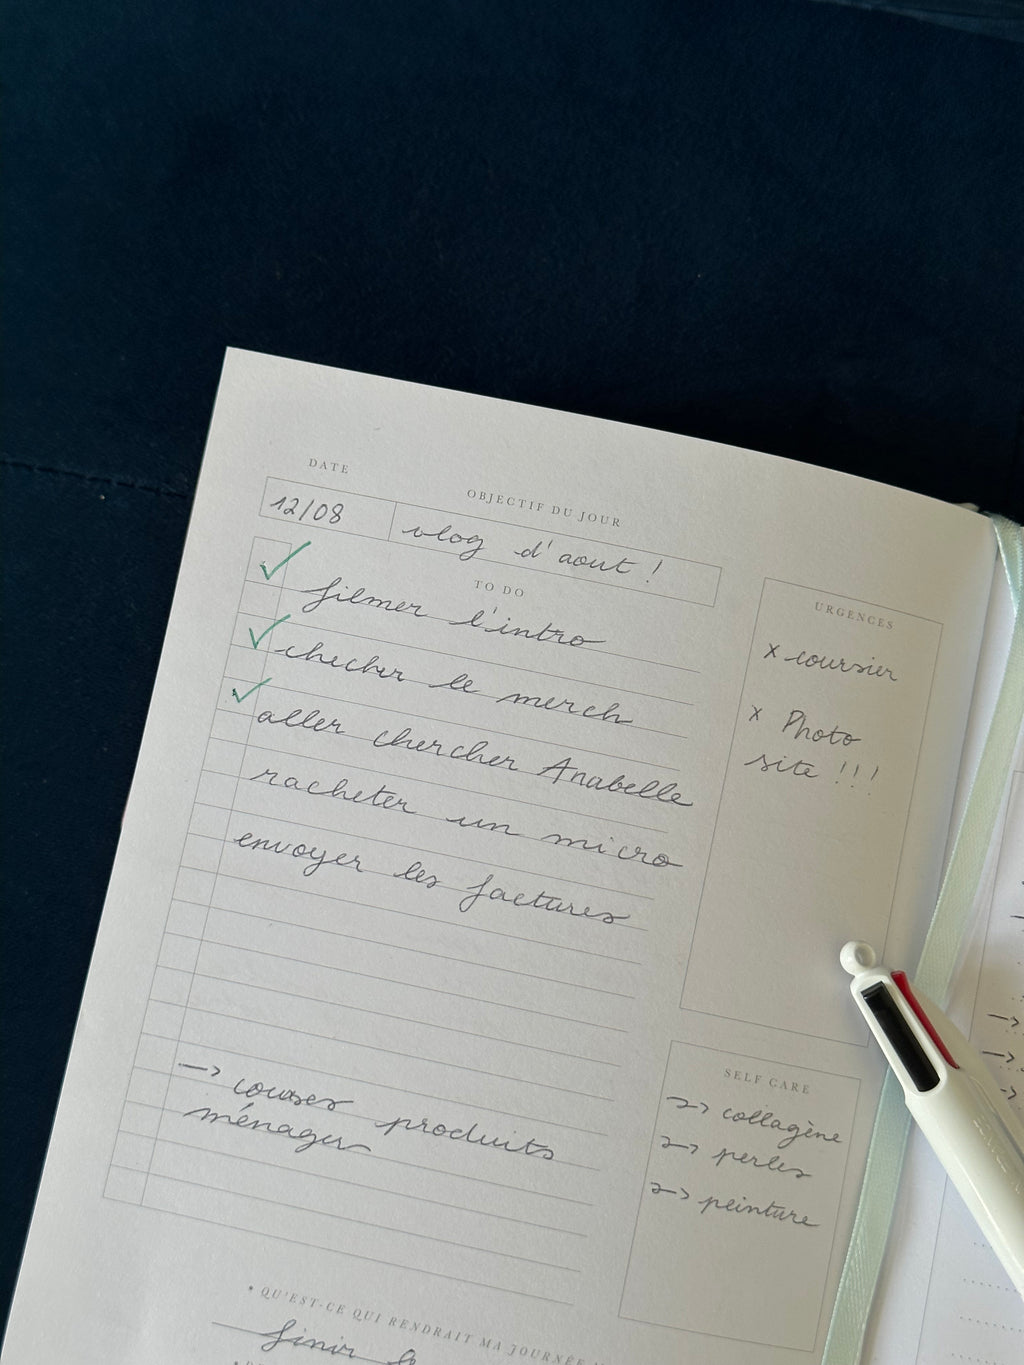 DATE
OBJECTIF DU JOUR
12/08
vlog d'aout !
TO DO
filmer l'intro
checher le merch
aller chercher Anabelle
racheter un micro
envoyer les factures
→ courses produits
ménager
URGENCES
x coursier
x Photo
site !!!
SELF CARE
→ collagène
→ perles
→ peinture
• QU'EST-CE QUI RENDRAIT MA JOURNÉE
finir